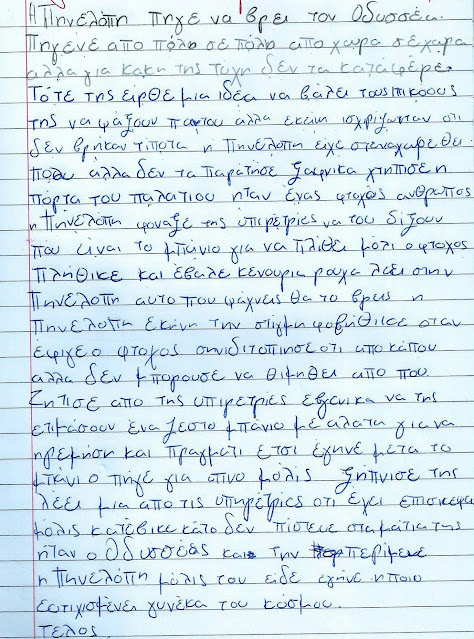 Η Πηνελόπη πηγε να βρει τον Οδυσσέα.
Πηγένε απο πόλη σε πόλη απο χωρα σε χωρα
αλλα για κακη της τυχη δεν τα κατάφερε.
Τότε της είρθε μια ιδέα να βάλει τους πικοους
της να ψάξουν παντου αλλα εκεινη ισχιριζωνταν οτι
δεν βρηκαν τιποτα η Πηνελοπη είχε στεναχωρεθει
πολυ αλλα δεν τα παρατησε ξαφνικα χτηπισε η
πόρτα του παλατιου ηταν ένας φτοχος ανθρωπος
η Πηνελόπη φοναξε της υπιρετριες να του δίξουν
που είναι το μπάνιο για να πλιθει μόλι ο φτοχος
πλήθικε και έβαλε κενουρια ρουχα λεει στην
Πηνελόπη αυτο που ψάχνεις θα το βρεις η
Πηνελοπη εκεινη την στιγμη φοβήθικε οταν
έφιγε ο φτοχος σηνιδιτοπιησε οτι απο κάπου
αλλα δεν μπορουσε να θιμηθει απο που
ζητισε απο της υπιρετριες εβγενικα να της
ετιμάσουν ενα ζεστο μπανιο με αλατα για να
ηρεμήση και πραγματι ετσι έγηνε μετα το
μπάνι ο πηγέ για υπνο μόλις ξηπνισε της
λέει μια απο τις υπηρέτριες οτι έχει επισκεψη
μόλις κατέβικε κάτο δεν πίστευε στα μάτια της
ήταν ο Οδυσσέας και την περίμενε
η Πηνελόπη μόλις τον είδε εγήνε η ποιο
ευτιχισμένει γυνέκα του κόσμου.
Τελος.